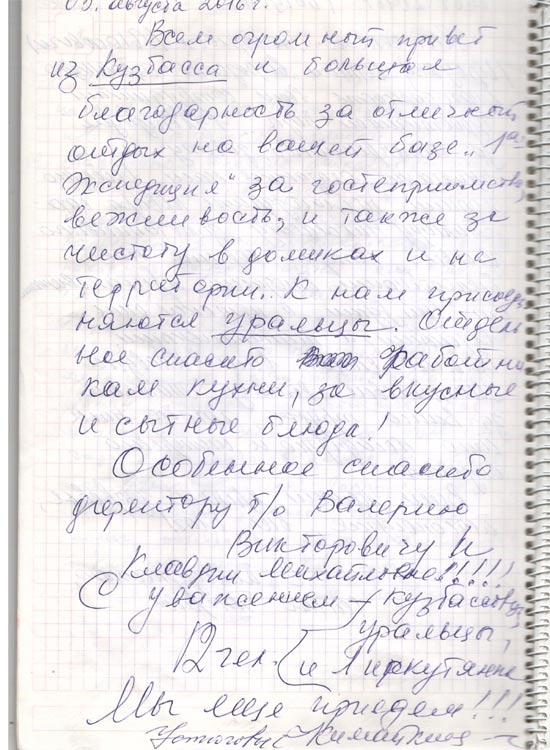 августа 2016 г.
Всем огромный привет
из Кузбасса и большая
благодарность за отличный
отдых на вашей базе "1ая
Экспедиция" за гостеприимство,
вежливость, и также за
чистоту в домиках и на
территории. К нам присоеди
няются уральцы. Отдель
ное спасибо работни
кам кухни, за вкусные
и сытные блюда!
Особенное спасибо
директору т/б Валерию
Викторовичу и
Клавдии Михайловне!!!!!
С уважением кузбассовцы,
уральцы,
12 чел. и 1 иркутянка
Мы ещё приедем!!!